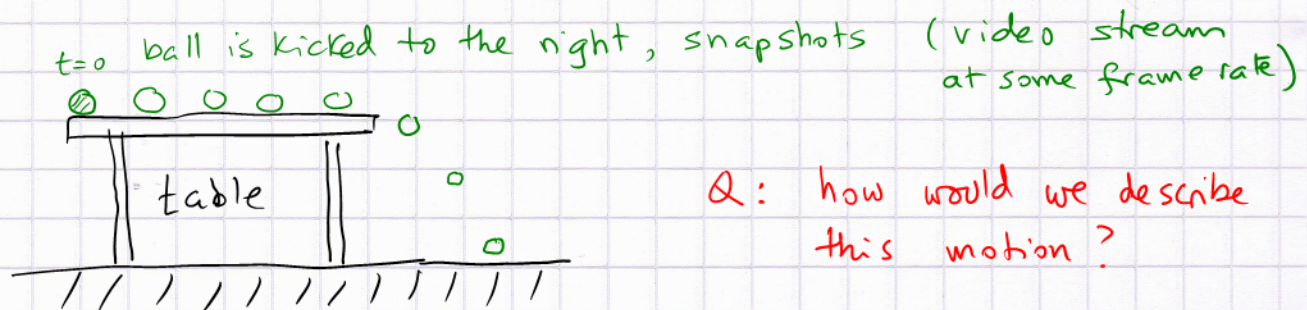 t=0 ball is kicked to the right, snapshots (video stream
at some frame rate)
table
Q: how would we describe
this motion?